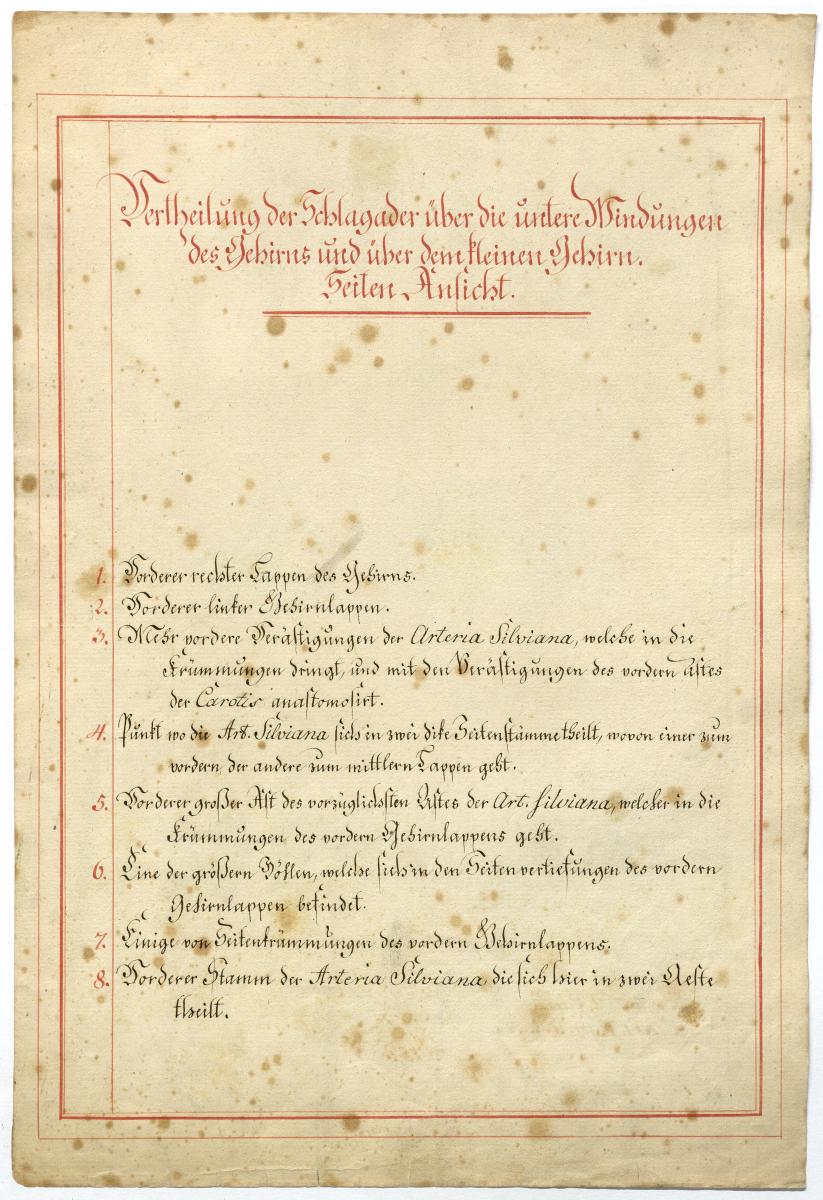 Vertheilung der Schlagader über die untere Windungen
des Gehirns und über dem kleinen Gehirn.
Seiten Ansicht.
1. Vorderer rechter Lappen des Gehirns.
2. Vorderer linker Gehirnlappen.
3. Mehr vordere Verästigungen der Arteria Silviana, welche in die
Krümmungen dringt, und mit den Verästigungen des vordern Astes
der Carotis anastomosirt.
4. Punkt wo die Art. Silviana sich in zwei dike Seitenstämme theilt, wovon einer zum
vordern, der andere zum mittlern Lappen geht.
5. Vorderer großer Ast des vorzüglichsten Astes der Art. Silviana, welcher in die
Krümmungen des vordern Gehirnlappens geht.
6. Eine der größern Höhlen, welche sich in den Seitenvertiefungen des vordern
Gehirnlappen befindet.
7. Einige von Seitenkrümmungen des vordern Gehirnlappens.
8. Vorderer Stamm der Arteria Silviana, die sich hier in zwei Aeste
theilt.